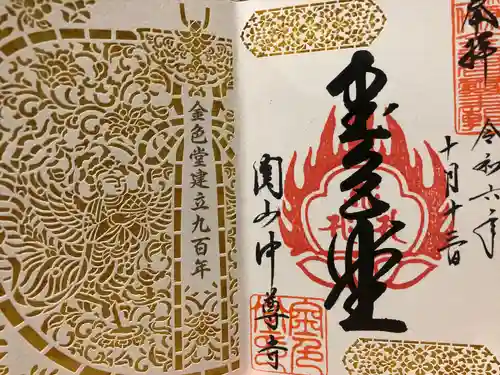 奉拝
令和六年
十月十三日
金色堂
関山中尊寺
金色堂建立九百年